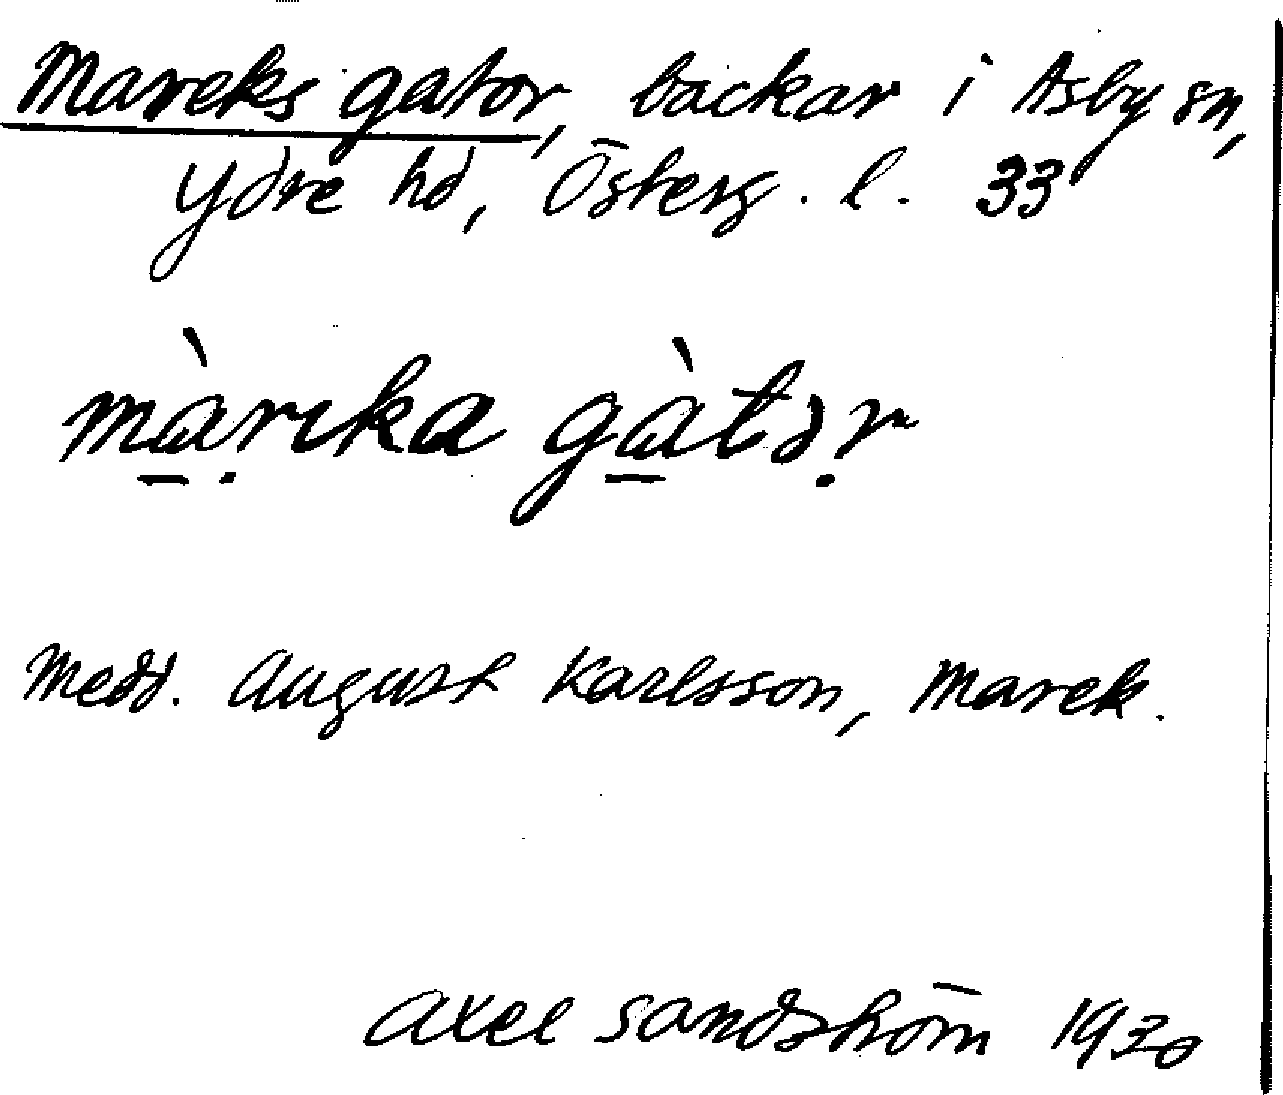 Mareks gator, backar i Asby sn,
Ydre hd, Österg. l. 33
màrika gàtər
Medd. August Karlsson, Marek.
Axel Sandström 1930